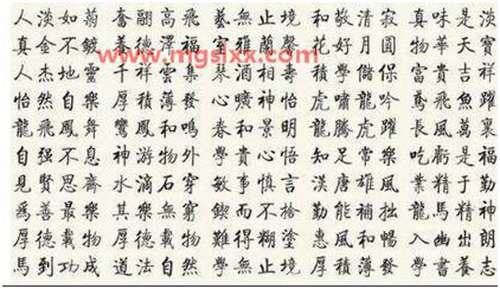 人淡如菊 奮翮高飛 藝無止境 和敬清寂 真味是淡
真金不鍍 養德澤福 室雅蘭馨 花好月圓 物華天寶
www.mgslxx.com
人杰地靈 千祥雲集 酒相 積學儲保 富貴吉祥
怡然自樂 厚積薄發 心曠神怡 虎嘯龍吟 鳶飛魚躍
龍飛鳳舞 鸞鳳和鳴 春和景明 龍騰虎躍 長風萬裏
自强不息 神游物外 和貴心悟 知足常樂 吃虧是福
見賢思齋 水滴石穿 敏事慎言 漢唐雄風 業精于勤
爲善最樂 其樂無窮 鍥而不捨 勤能補拙 龍馬精神
厚德載物 厚德載物 難得糊塗 惠風和暢 入幽出朗
馬到功成 道法自然 學無止境 厚積薄發 學書養志